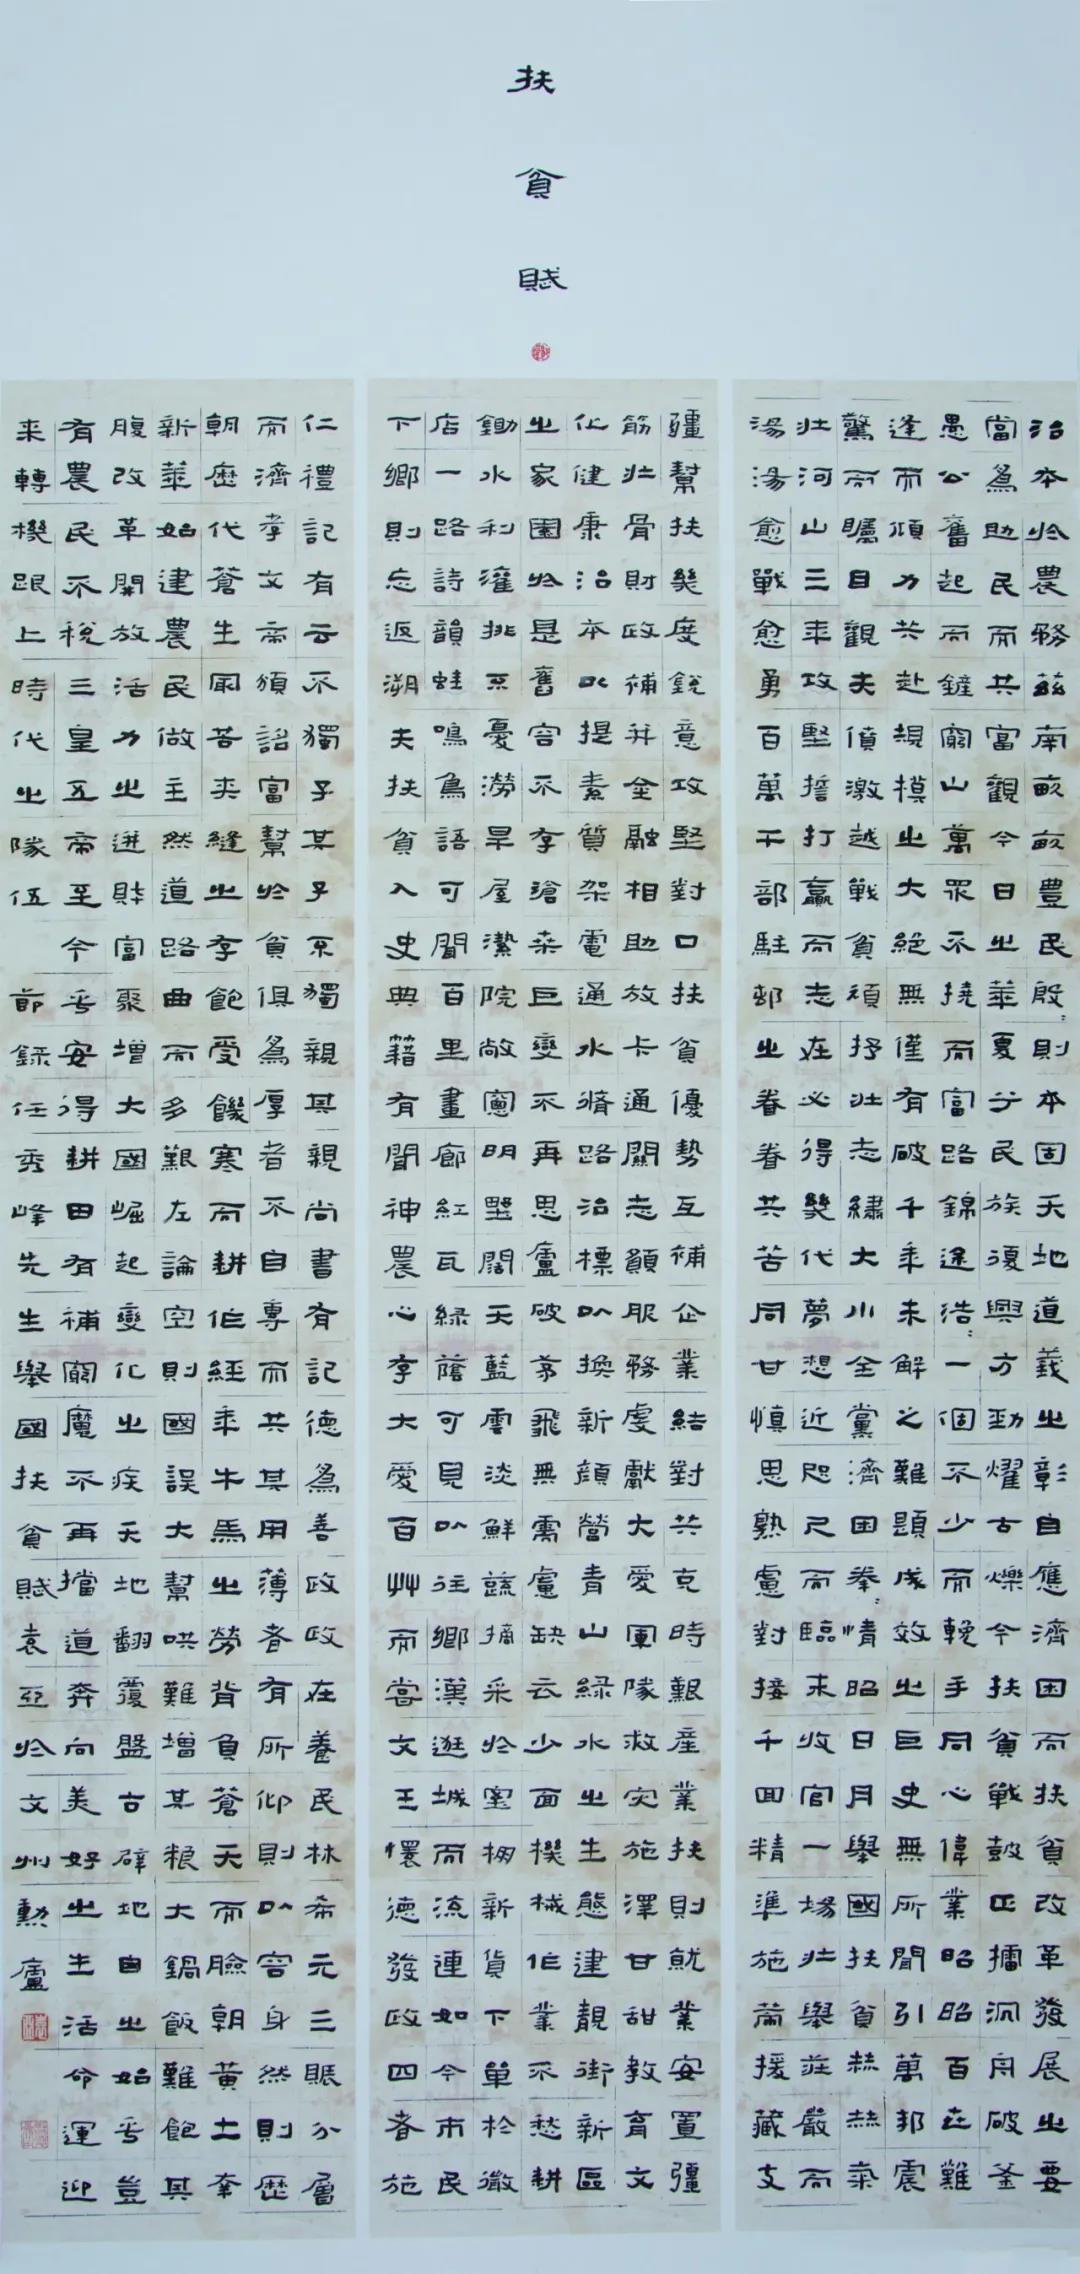 扶貧賦
治本於農務茲南畝畝豊民殷=則本固天地道義之彰自應濟困而扶貧改革發展之要
當爲助民而共富觀今日之華夏兮民族復興方勁燿古爍今扶貧戰鼓正擂沉舟破釜
愚公奮起而鏟窮山萬眾不撓而富路錦途浩=一個不少而輓手同心偉業昭昭百世難
逢而傾力共赴規模之大絕無僅有破千年未解之難題成效之巨史無所聞引萬邦震
驚而矚目觀夫僨激越戰貧頑抒壯志繡大小全黨濟困拳=情昭日月舉國扶貧赫赫氣
壯河山三年攻堅誓打贏而志在必得幾代夢想近咫尺而臨末收官一場壯舉莊嚴而
湯湯愈戰愈勇百萬干部駐邨之眷眷共苦同甘慎思熟慮對接千回精準施援藏支
疆幫扶幾度銳意攻堅對口扶貧優勢互補企業結對共克時艱産業扶則就業安置彊
筋壯骨財政補并金融相助放卡通關志願服務虔獻大愛軍隊救灾施澤甘甜教育文
化健康治本以提素質架電通水脩路治標以換新顔營青山緑水之生態建靚街新區
之家園於是舊容不存滄桑巨變不再思廬破茅飛無需慮缺衣少面機械作業不愁耕
鋤水利灌排不憂澇旱屋潔院敞窗明墅闊天藍雲淡鮮蔬摘采於蜜棚新貨下單於微
店一路詩韻蛙鳴鳥語可聞百里畫廊紅瓦緑蔭可見以往鄉漢逛城而流連如今市民
下鄉則忘返溯夫扶貧入史典藉有聞神農心存大愛百艸而嘗文王懷德發政四者施
仁禮記有云不獨子其子不獨親其親尚書有記德爲善政政在養民林希元三賑分層
而濟孝文帝頒詔富幫於貧俱爲厚者不自專而共其用薄者有所仰則以容身然則歷
朝歷代蒼生罔苦夾縫之存飽受饑寒而耕作經年牛馬之勞背負蒼天而臉朝黃土牽
新華始建農民做主然道路曲而多艱左論空則國誤大幫哄難增其粮大鍋飯難飽其
腹改革開放活力之迸財富聚增大國崛起變化之疾天地翻覆盤古辟地自之始乎豈
有農民不稅三皇五帝至今乎安得耕田有補窮魔不再擋道奔向美好之生活命運迎
来轉機跟上時代之隊伍 節録任秀峰先生舉國扶貧賦袁亞於文州勳廬